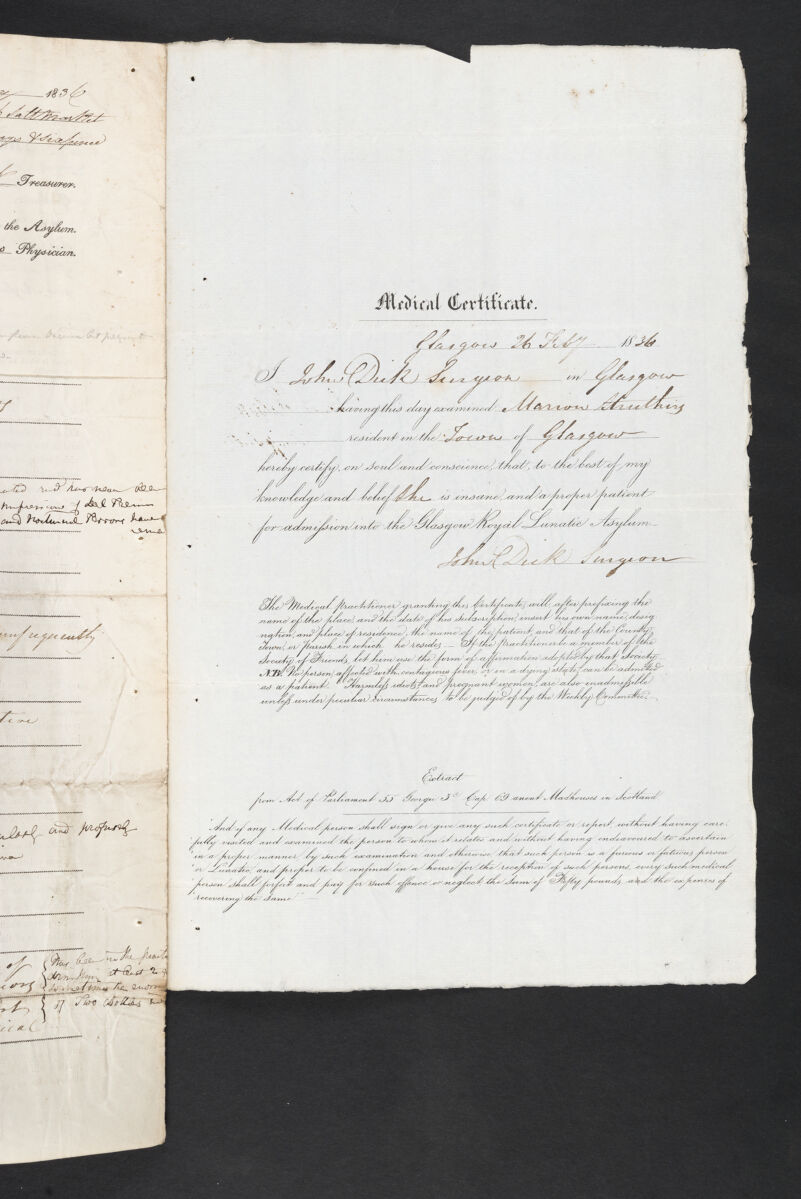 1836
Saltmarket
& sixpence
Treasurer.
the Asylum.
Physician.
and has never been
impression of
and Nocturnal
frequently
and profusely
of
Medical Certificate.
Glasgow 26 Feby 1836
I John Dick Surgeon in Glasgow
having this day examined Marion Struthers
resident in the Town of Glasgow
hereby certify, on soul and conscience, that, to the best of my
knowledge and belief she is insane, and a proper patient
for admission into the Glasgow Royal Lunatic Asylum.
John Dick Surgeon
The Medical Practitioner granting this Certificate, will after prefixing the
name of the place, and the date of his subscription, insert his own name, desig
nation, and place of residence, the name of the patient, and that of the County,
Town, or Parish in which he resides. — If the Practitioner be a member of the
Society of Friends, let him use the form of affirmation adopted by that Society.
N.B. No person affected with contagious fever, or in a dying state, can be admitted
as a patient. Harmless idiots, and pregnant women, are also inadmissible
unless under peculiar circumstances, to be judged of by the Weekly Committee.
Extract
from Act of Parliament 55 George 3d Cap 69 anent Madhouses in Scotland
"And if any Medical person shall sign or give any such certificate or report without having care
fully visited and examined the person to whom it relates and without having endeavoured to ascertain
in a proper manner by such examination and otherwise that such person is a furious or fatuous person
or Lunatic, and proper to be confined in a house for the reception of such persons, every such medical
person shall forfeit and pay for such offence or neglect the sum of Fifty pounds, and the expenses of
recovering the same"